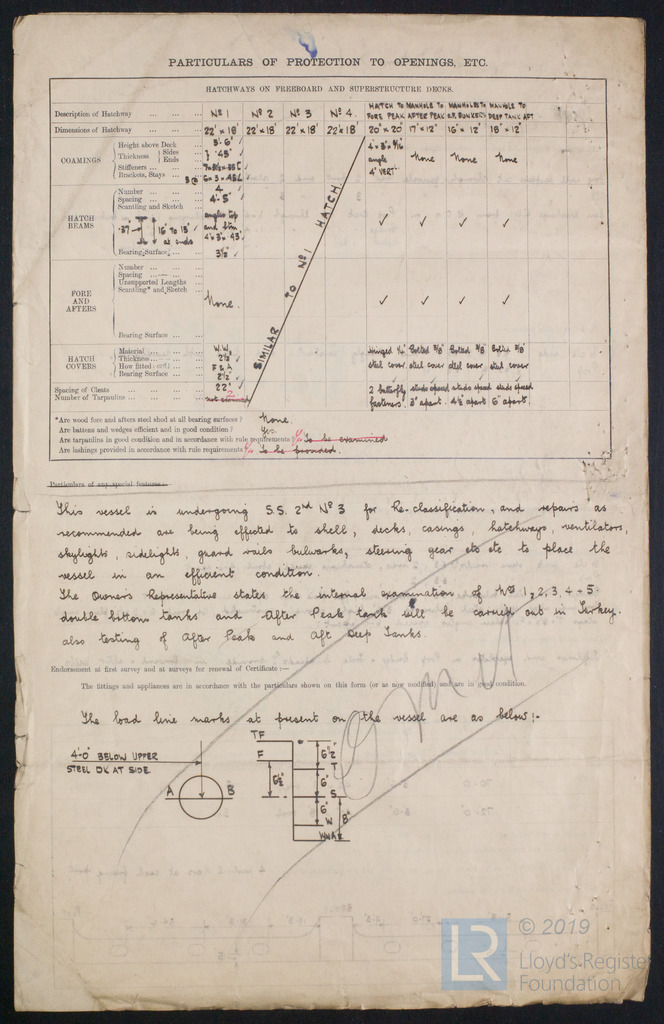 PARTICULARS OF PROTECTION TO OPENINGS, ETC.
HATCHWAYS ON FREEBOARD AND SUPERSTRUCTURE DECKS.
Description of Hatchway Nº 1 Nº 2 Nº 3 Nº 4 HATCH TO FORE PEAK MANHOLE TO AFTER PEAK MANHOLES TO BUNKERS MANHOLE TO DEEP TANK AFT
Dimensions of Hatchway 22' x 18' 22' x 18' 22' x 18' 22' x 18' 20" x 20" 17" x 12" 16" x 12" 18" x 12"
COAMINGS
Height above Deck 3'-6"
Thickness Sides Ends .45"
Stiffeners
Brackets, Stays
angle 4" VERT
None None None
HATCH BEAMS
Number 4
Spacing 4'-5"
Scantling and Sketch angles top and btm
.37" 16" TO 13" at ends
Bearing Surface 3½"
SIMILAR TO Nº 1 HATCH
FORE AND AFTERS
Number
Spacing
Unsupported Lengths
Scantling* and Sketch
None.
Bearing Surface
HATCH COVERS
Material W.W.
Thickness 2½"
How fitted F & A
Bearing Surface 2½"
hinged ¼" steel cover
bolted 3/8" steel cover
bolted 3/8" steel cover
bolted 3/8" steel cover
Spacing of Cleats 22"
Number of Tarpaulins 2
2 butterfly fasteners. studs spaced 3" apart. studs spaced 4½" apart studs spaced 6" apart.
*Are wood fore and afters steel shod at all bearing surfaces? None.
Are battens and wedges efficient and in good condition? Yes.
Are tarpaulins in good condition and in accordance with rule requirements? To be examined
Are lashings provided in accordance with rule requirements To be provided.
Particulars of any special features
This vessel is undergoing S.S. 2nd Nº 3 for Re-classification, and repairs as
recommended are being effected to shell, decks, casings, hatchways, ventilators,
skylights, sidelights, guard rails bulwarks, steering gear etc etc to place the
vessel in an efficient condition.
The Owners Representative states the internal examination of Nºs 1, 2, 3, 4 & 5
double bottom tanks and After Peak tank will be carried out in Turkey.
also testing of After Peak and Aft Deep Tanks.
Endorsement at first survey and at surveys for renewal of Certificate:—
The fittings and appliances are in accordance with the particulars shown on this form (or as now modified) and are in good condition.
The load line marks at present on the vessel are as below :-
4'-0" BELOW UPPER
STEEL DK AT SIDE.
A B
TF
F
6½"
6½"
T
6"
S
6"
W
8"
WNA
© 2019
LR
Lloyd's Register
Foundation